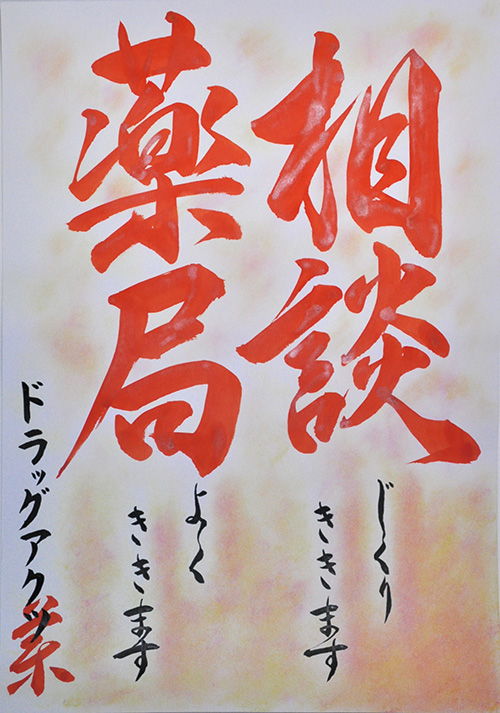 相談
薬局
じくり
ききます
よく
ききます
ドラッグアクツ